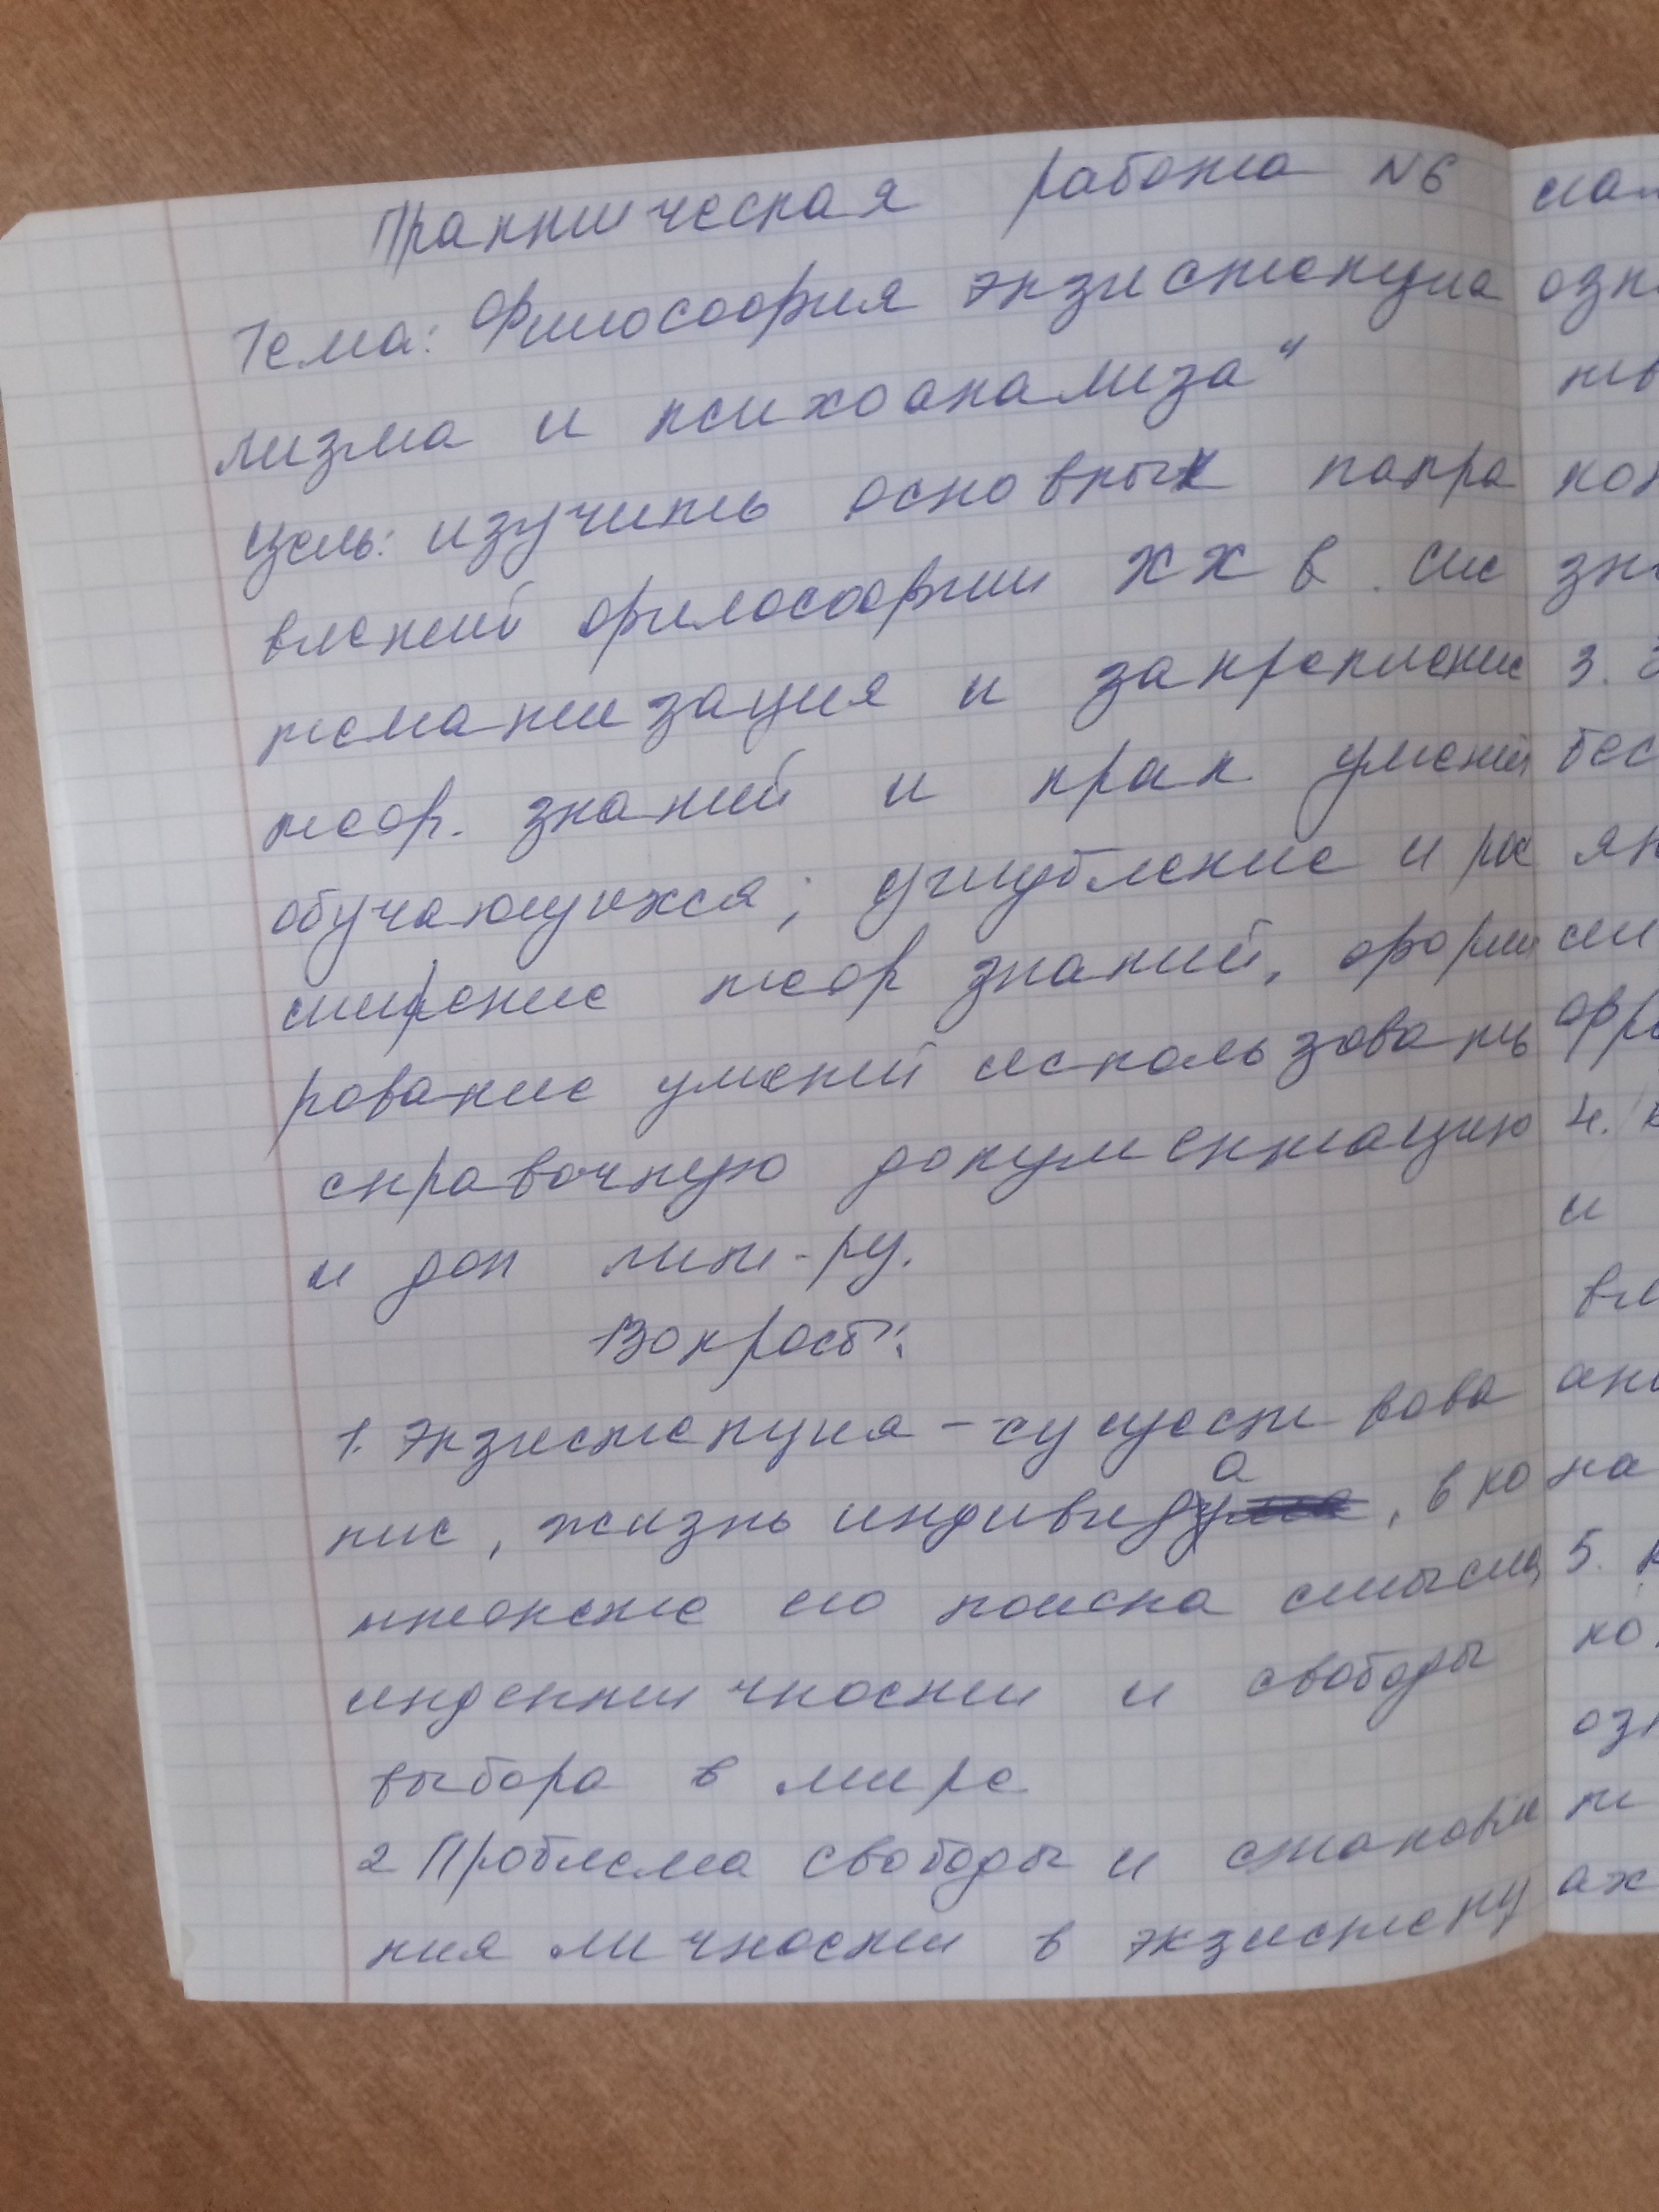 Практическая работа №6
Тема: Философия экзистенциа
лизма и психоанализа"
Цель: изучить основных напра
влений философии XX в. сис
тематизация и закрепление
теор. знаний и прак умений
обучающихся; углубление и рас
ширение теор знаний, форми
рование умений использовать
справочную документацию
и доп лит-ру.
Вопросы:
1. Экзистенция - существова
ние, жизнь индивида, в ко
нтексте его поиска смысла,
индентичности и свободы
выбора в мире
2 Проблема свободы и становле
ния личности в экзистенц
озн
нов
зна
3.
бес
4.
и
на
5.
ко
озн